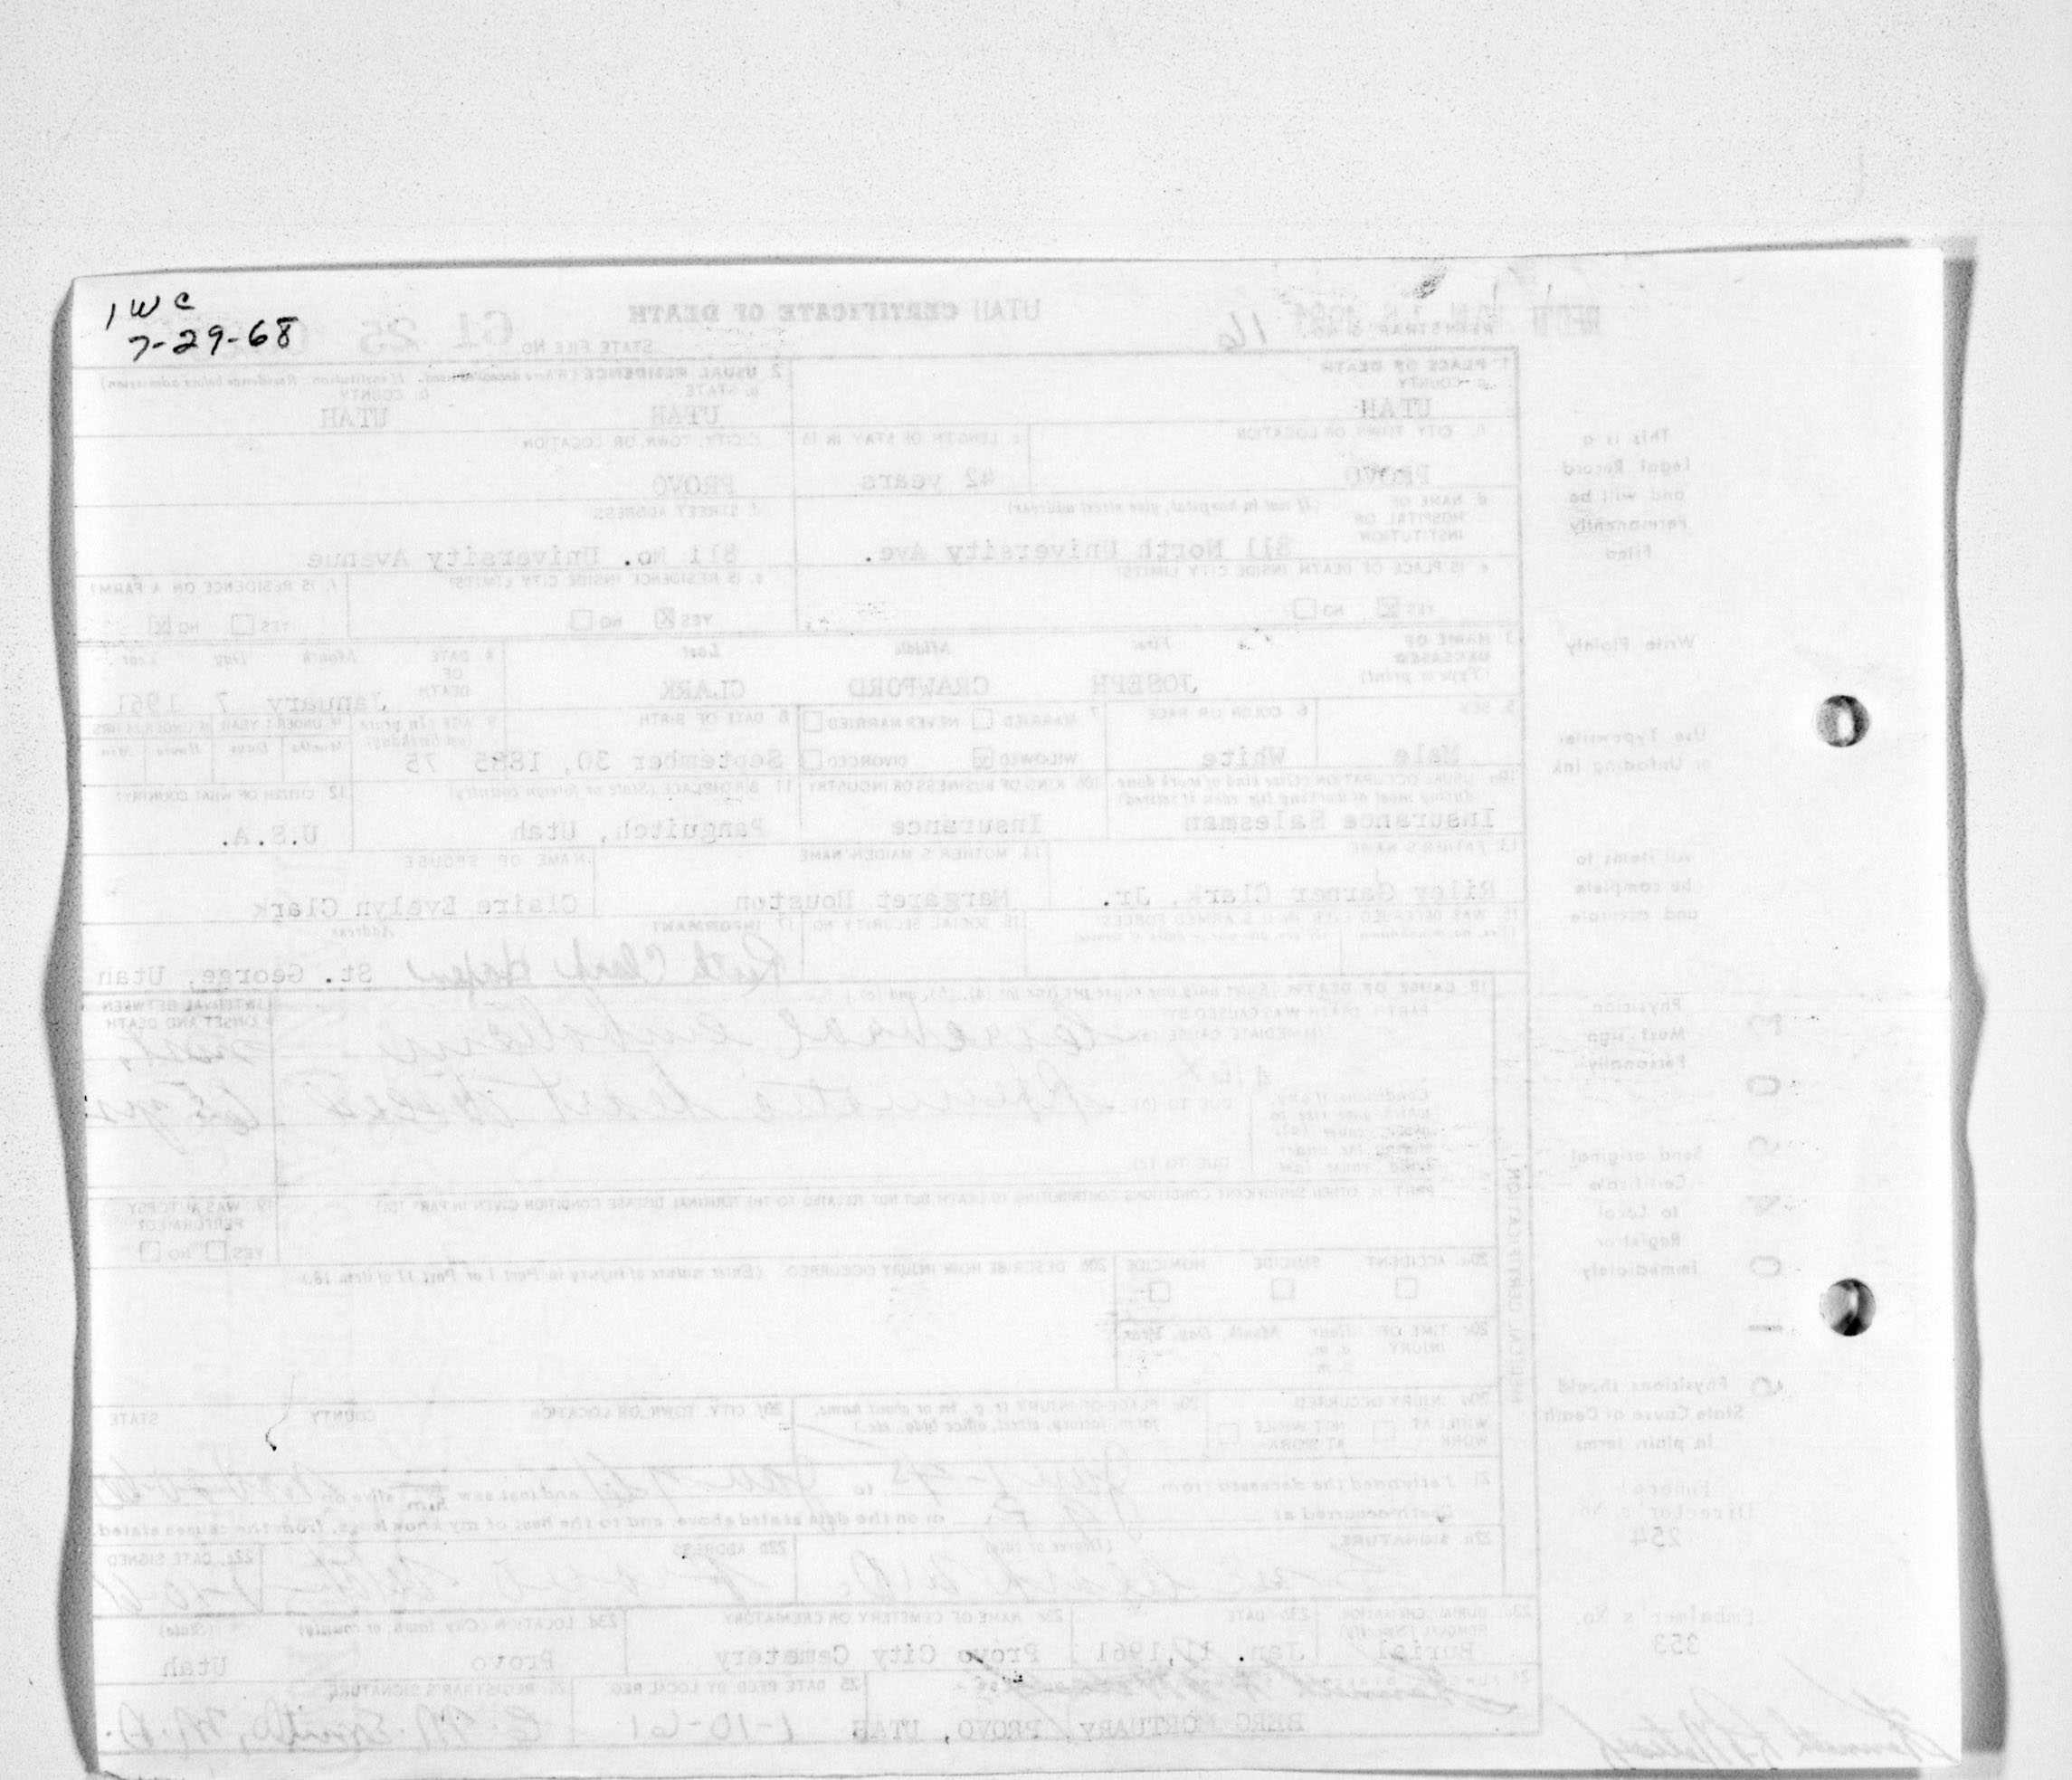 1WC
7-29-68
UTAH CERTIFICATE OF DEATH
REGISTRAR'S NO. 16
STATE FILE NO. 61 25
1. PLACE OF DEATH
a. COUNTY
UTAH
2. USUAL RESIDENCE (Where deceased lived. If institution: Residence before admission)
a. STATE
UTAH
b. COUNTY
UTAH
b. CITY, TOWN, OR LOCATION
PROVO
c. LENGTH OF STAY IN 1b
42 years
c. CITY, TOWN, OR LOCATION
PROVO
d. NAME OF HOSPITAL OR INSTITUTION (If not in hospital, give street address)
811 North University Ave.
d. STREET ADDRESS
811 No. University Avenue
e. IS PLACE OF DEATH INSIDE CITY LIMITS?
YES NO
e. IS RESIDENCE INSIDE CITY LIMITS?
YES NO
f. IS RESIDENCE ON A FARM?
YES NO
3. NAME OF DECEASED (Type or print)
First Middle Last
JOSEPH CRAWFORD CLARK
4. DATE OF DEATH
Month Day Year
January 7 1961
5. SEX
Male
6. COLOR OR RACE
White
7. MARRIED NEVER MARRIED
WIDOWED DIVORCED
8. DATE OF BIRTH
September 30, 1885
9. AGE (In years last birthday)
75
IF UNDER 1 YEAR IF UNDER 24 HRS.
Months Days Hours Min.
10a. USUAL OCCUPATION (Give kind of work done during most of working life, even if retired)
Insurance Salesman
10b. KIND OF BUSINESS OR INDUSTRY
Insurance
11. BIRTHPLACE (State or foreign country)
Panguitch, Utah
12. CITIZEN OF WHAT COUNTRY?
U.S.A.
13. FATHER'S NAME
Riley Garner Clark, Jr.
14. MOTHER'S MAIDEN NAME
Margaret Houston
NAME OF SPOUSE
Claire Evelyn Clark
15. WAS DECEASED EVER IN U.S. ARMED FORCES?
16. SOCIAL SECURITY NO.
17. INFORMANT Address
Ruth Clark Hafen St. George, Utah
18. CAUSE OF DEATH (Enter only one cause per line for (a), (b), and (c).)
PART I. DEATH WAS CAUSED BY:
IMMEDIATE CAUSE (a) Cerebral embolism
INTERVAL BETWEEN ONSET AND DEATH
Conditions, if any, which gave rise to above cause (a), stating the underlying cause last.
DUE TO (b) Rheumatic heart
DUE TO (c)
PART II. OTHER SIGNIFICANT CONDITIONS CONTRIBUTING TO DEATH BUT NOT RELATED TO THE TERMINAL DISEASE CONDITION GIVEN IN PART I(a)
19. WAS AUTOPSY PERFORMED?
YES NO
20a. ACCIDENT SUICIDE HOMICIDE
20b. DESCRIBE HOW INJURY OCCURRED. (Enter nature of injury in Part I or Part II of item 18.)
20c. TIME OF INJURY Hour Month, Day, Year
a.m.
p.m.
20d. INJURY OCCURRED
WHILE AT WORK NOT WHILE AT WORK
20e. PLACE OF INJURY (e.g., in or about home, farm, factory, street, office bldg., etc.)
20f. CITY, TOWN, OR LOCATION COUNTY STATE
21. I attended the deceased from to and last saw him alive on
Death occurred at on the date stated above, and to the best of my knowledge, from the causes stated.
22a. SIGNATURE (Degree or title)
22b. ADDRESS
22c. DATE SIGNED
23a. BURIAL, CREMATION, REMOVAL (Specify)
Burial
23b. DATE
Jan. 11, 1961
23c. NAME OF CEMETERY OR CREMATORY
Provo City Cemetery
23d. LOCATION (City, town, or county) (State)
Provo Utah
BERG MORTUARY, PROVO, UTAH
25. DATE RECD BY LOCAL REG.
1-10-61
26. REGISTRAR'S SIGNATURE
C. M. Smith, M.D.
This is a
Legal Record
and will be
Permanently
Filed
Write Plainly
Use Typewriter
or Unfading Ink
All items to
be complete
and accurate
Physician
Must sign
Personally
Send original
Certificate
to Local
Registrar
Immediately
Physicians should
State Cause of Death
in plain terms
Funeral
Director's No.
254
Embalmer's No.
353
MEDICAL CERTIFICATION